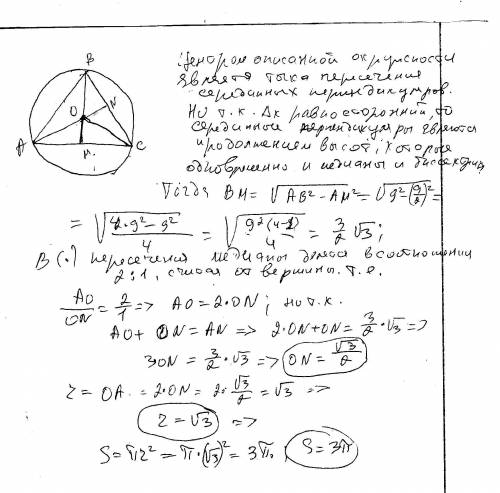 B
O
N
A
M
C
Центром описанной окружности
является точка пересечения
серединных перпендикуляров.
Но т.к. Δк равносторонний, то
серединные перпендикуляры являются
продолжением высот, которые
одновременно и медианы и биссектрисы
Тогда BM = √AB² - AM² = √9² - (9/2)² =
= √4·9² - 9²/4 = √9²(4-1)/4 = 3/2 √3;
В (·) пересечения медианы делятся в соотношении
2:1, считая от вершины. т.е.
AO/ON = 2/1 => AO = 2·ON; но т.к.
AO + ON = AN => 2·ON + ON = 3/2·√3 =>
3ON = 3/2·√3 => ON = √3/2
r = OA = 2·ON = 2·√3/2 = √3 =>
r = √3 =>
S = πr² = π·(√3)² = 3π. S = 3π